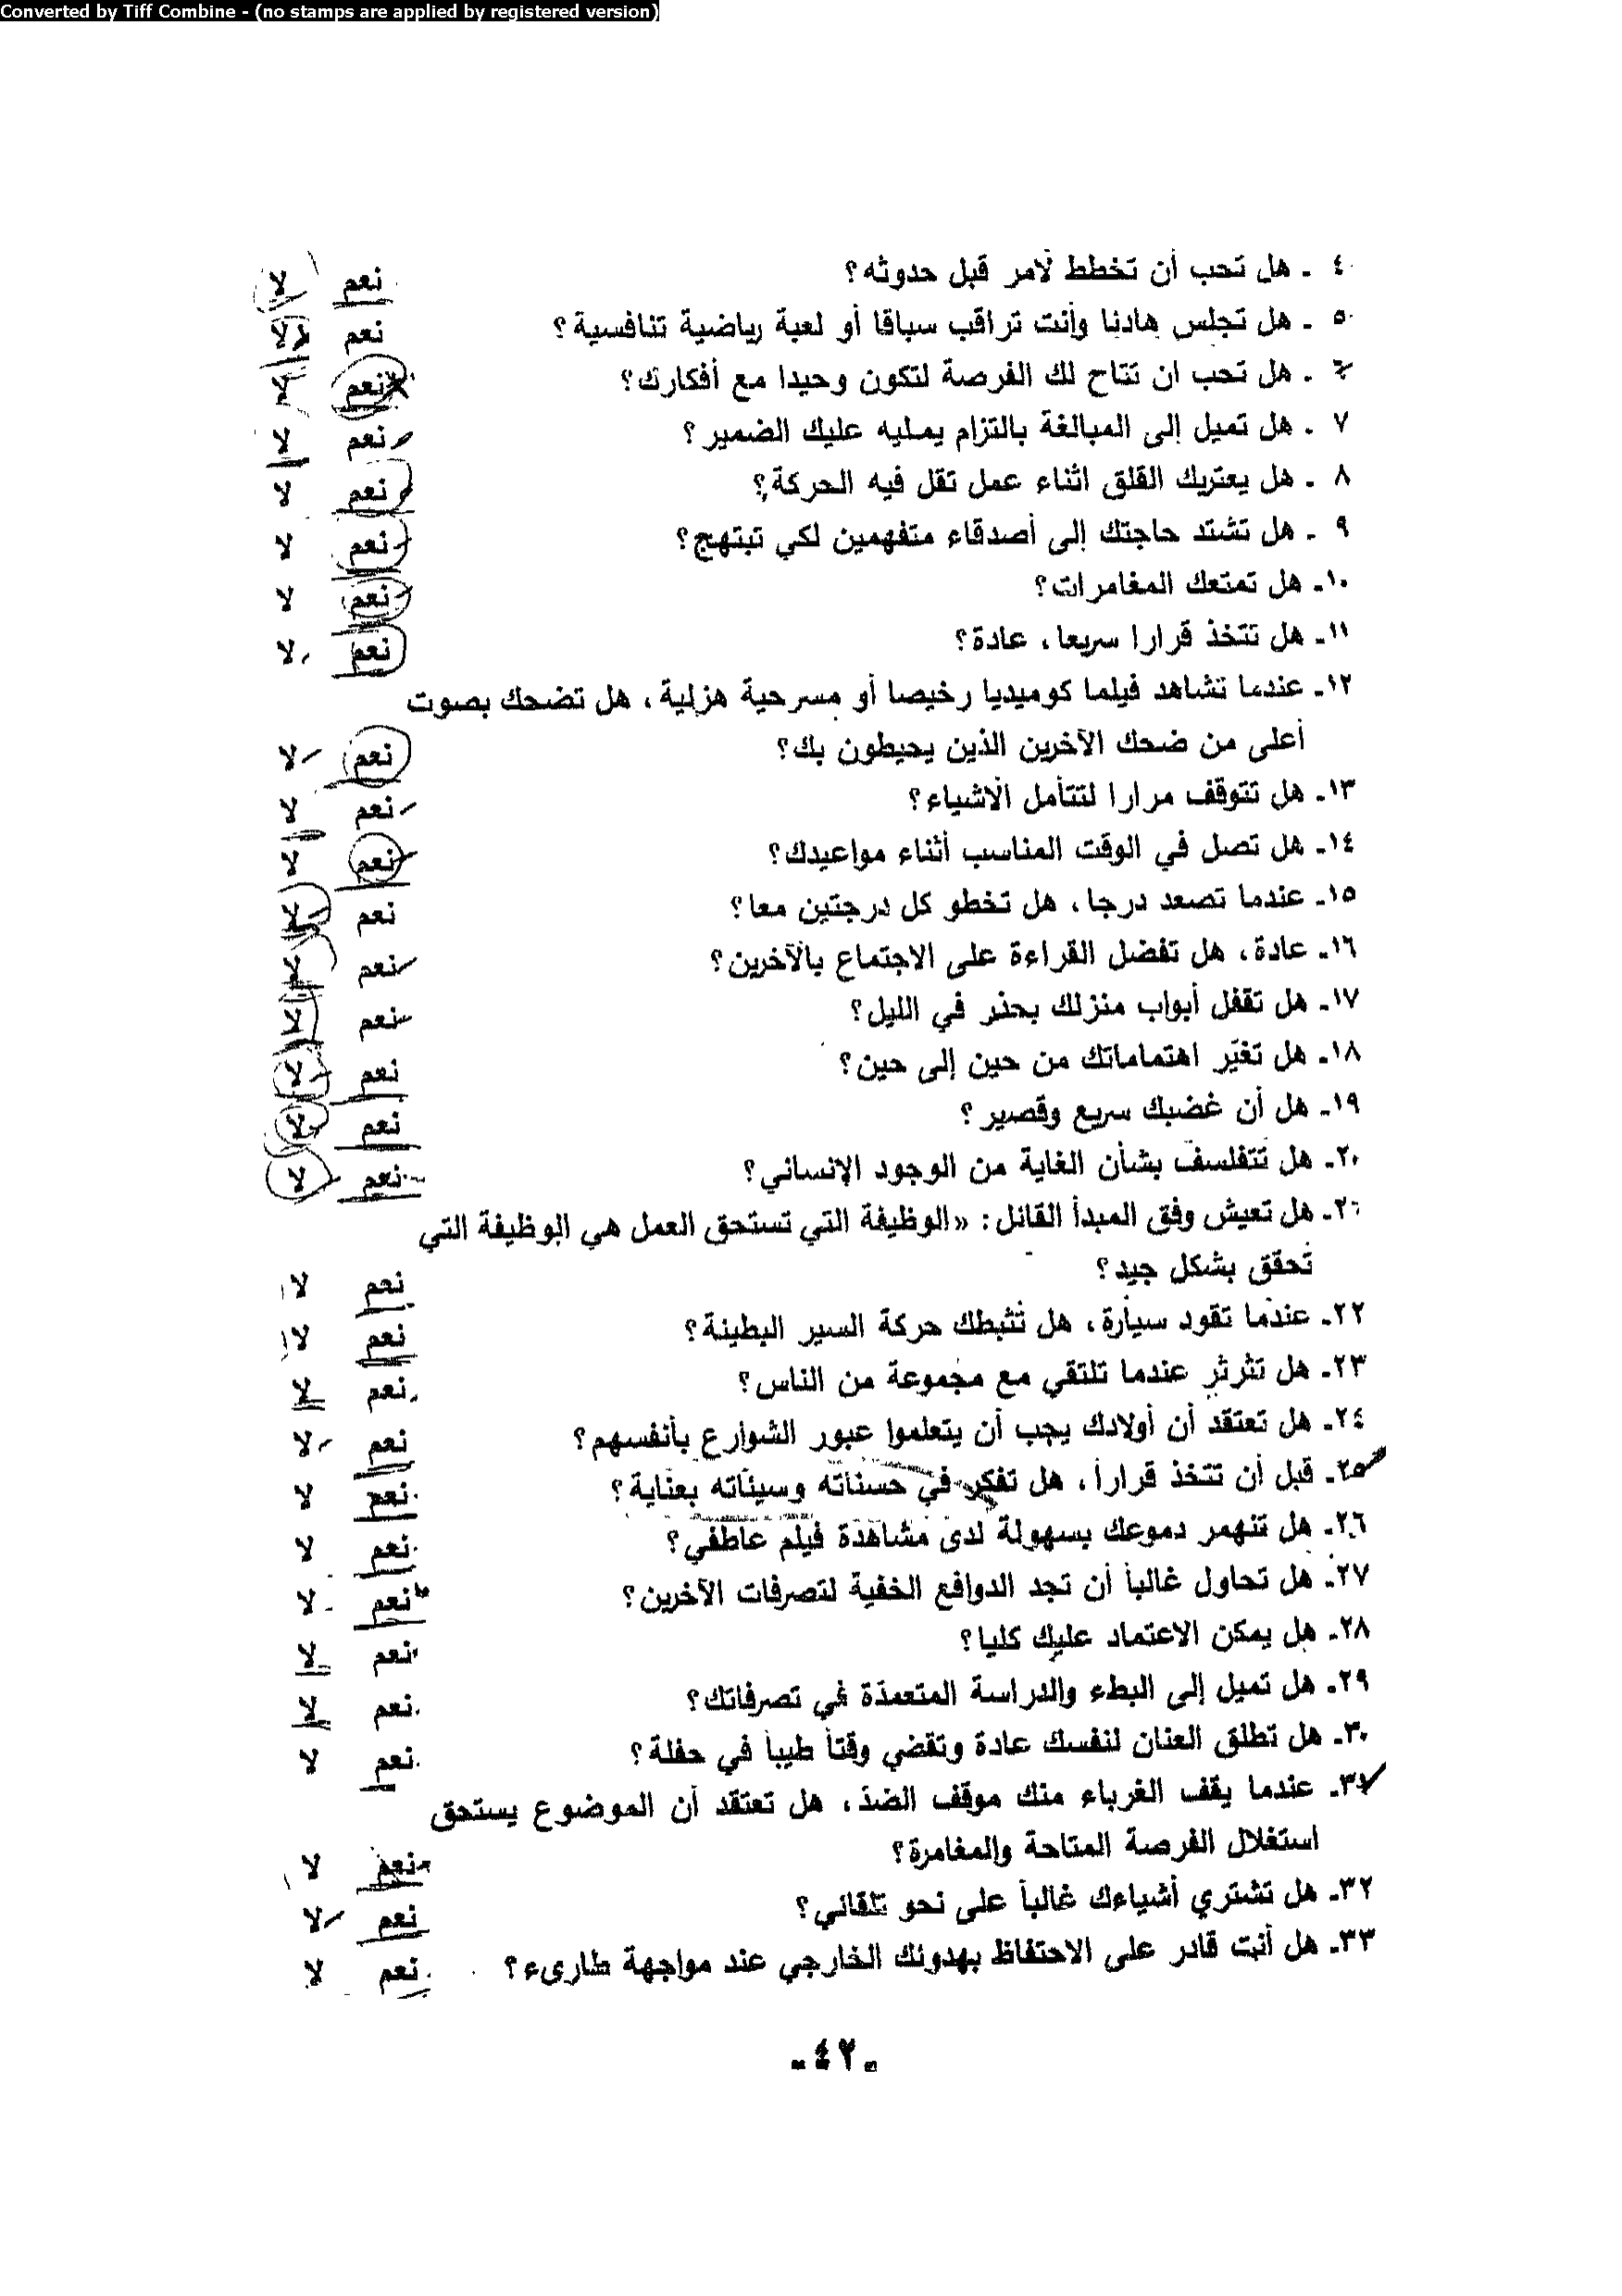 Converted by Tiff Combine - (no stamps are applied by registered version)
٤ ـ هل تحب أن تخطط لأمر قبل حدوثه؟ نعم لا
٥ ـ هل تجلس هادئا وأنت تراقب سباقا أو لعبة رياضية تنافسية؟ نعم لا
٦ ـ هل تحب ان تتاح لك الفرصة لتكون وحيدا مع أفكارك؟ نعم لا
٧ ـ هل تميل إلى المبالغة بالتزام يمليه عليك الضمير؟ نعم لا
٨ ـ هل يعتريك القلق اثناء عمل تقل فيه الحركة؟ نعم لا
٩ ـ هل تشتد حاجتك إلى أصدقاء متفهمين لكي تبتهج؟ نعم لا
١٠ـ هل تمتعك المغامرات؟ نعم لا
١١ـ هل تتخذ قرارا سريعا، عادة؟ نعم لا
١٢ـ عندما تشاهد فيلما كوميديا رخيصا أو مسرحية هزلية، هل تضحك بصوت
أعلى من ضحك الآخرين الذين يحيطون بك؟ نعم لا
١٣ـ هل تتوقف مرارا لتتأمل الأشياء؟ نعم لا
١٤ـ هل تصل في الوقت المناسب أثناء مواعيدك؟ نعم لا
١٥ـ عندما تصعد درجا، هل تخطو كل درجتين معا؟ نعم لا
١٦ـ عادة، هل تفضل القراءة على الاجتماع بالآخرين؟ نعم لا
١٧ـ هل تقفل أبواب منزلك بحذر في الليل؟ نعم لا
١٨ـ هل تغيّر اهتماماتك من حين إلى حين؟ نعم لا
١٩ـ هل أن غضبك سريع وقصير؟ نعم لا
٢٠ـ هل تتفلسف بشأن الغاية من الوجود الإنساني؟ نعم لا
٢١ـ هل تعيش وفق المبدأ القائل: «الوظيفة التي تستحق العمل هي الوظيفة التي
تحقق بشكل جيد؟ نعم لا
٢٢ـ عندما تقود سيارة، هل تثبطك حركة السير البطيئة؟ نعم لا
٢٣ـ هل تثرثر عندما تلتقي مع مجموعة من الناس؟ نعم لا
٢٤ـ هل تعتقد أن أولادك يجب أن يتعلموا عبور الشوارع بأنفسهم؟ نعم لا
٢٥ـ قبل أن تتخذ قراراً، هل تفكر في حسناته وسيئاته بعناية؟ نعم لا
٢٦ـ هل تنهمر دموعك بسهولة لدى مشاهدة فيلم عاطفي؟ نعم لا
٢٧ـ هل تحاول غالباً أن تجد الدوافع الخفية لتصرفات الآخرين؟ نعم لا
٢٨ـ هل يمكن الاعتماد عليك كليا؟ نعم لا
٢٩ـ هل تميل إلى البطء والدراسة المتعمدة في تصرفاتك؟ نعم لا
٣٠ـ هل تطلق العنان لنفسك عادة وتقضي وقتاً طيباً في حفلة؟ نعم لا
٣١ـ عندما يقف الغرباء منك موقف الضدّ، هل تعتقد أن الموضوع يستحق
استغلال الفرصة المتاحة والمغامرة؟ نعم لا
٣٢ـ هل تشتري أشياءك غالباً على نحو تلقائي؟ نعم لا
٣٣ـ هل أنت قادر على الاحتفاظ بهدوئك الخارجي عند مواجهة طارىء؟ نعم لا
ـ٤٢ـ